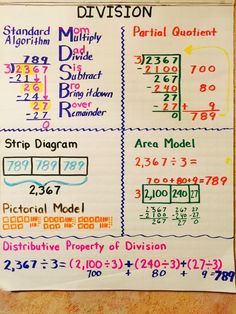 DIVISION
Standard Algorithm
Mom Multiply
Dad Divide
Sis Subtract
Bro Bring it down
Rover Remainder
789
3)2367
-21
26
-24
27
-27
0
Partial Quotient
3)2367
-2100 700
267
-240 80
27
-27 + 9
0 789
Strip Diagram
789 789 789
2,367
Pictorial Model
Area Model
2,367 ÷ 3 =
700+80+9=789
3 2,100 240 27
2367 267 27
-2100 -240 -27
267 27 0
Distributive Property of Division
2,367 ÷ 3 = (2,100÷3)+(240÷3)+(27÷3)
700 + 80 + 9 =789